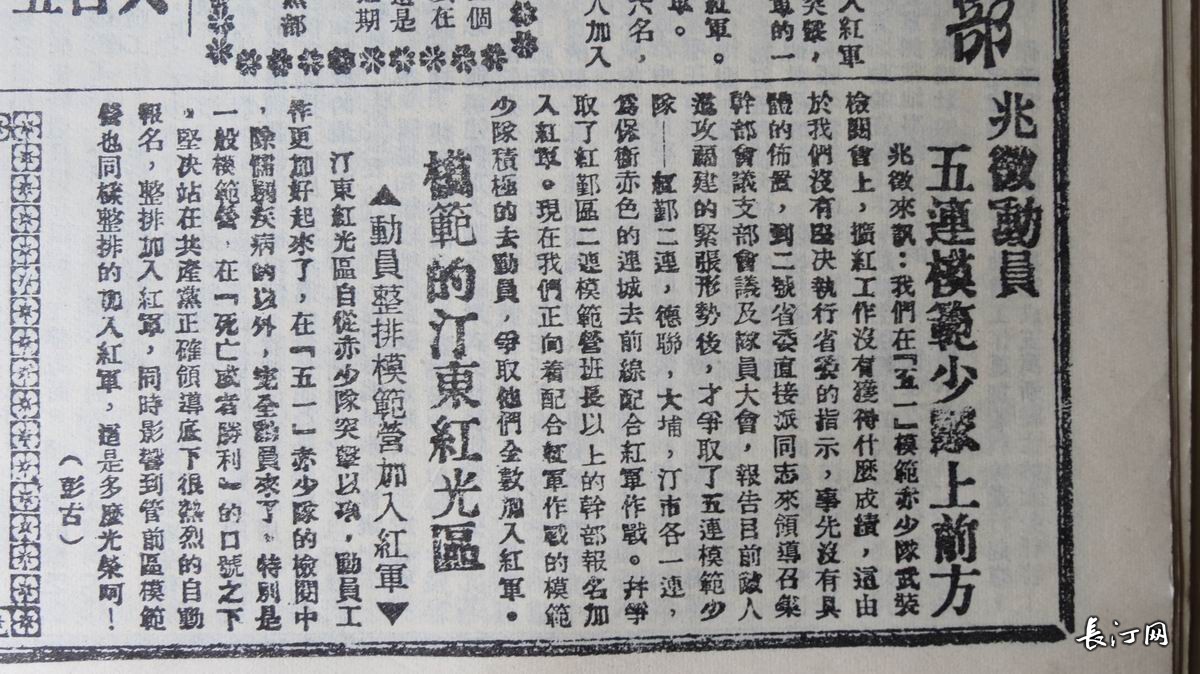 部
入紅軍
突擊，
軍的一
紅軍。
六名，
入加入
兆徵動員
五連模範少隊上前方
兆徵來訊：我們在「五一」模範赤少隊武裝
檢閱會上，擴紅工作沒有獲得什麼成績，這由
於我們沒有堅决執行省委的指示，事先沒有具
體的佈置，到二號省委直接派同志來領導召集
幹部會議支部會議及隊員大會，報告目前敵人
進攻福建的緊張形勢後，才爭取了五連模範少
隊——紅鄞二連，德聯，大埔，汀市各一連，
爲保衛赤色的連城去前線配合紅軍作戰。幷爭
取了紅鄞區二連模範營班長以上的幹部報名加
入紅軍。現在我們正向着配合紅軍作戰的模範
少隊積極的去動員，爭取他們全數加入紅軍。
模範的汀東紅光區
▲動員整排模範營加入紅軍▼
汀東紅光區自從赤少隊突擊以攻，動員工
作更加好起來了，在「五一」赤少隊的檢閱中
，除懦弱疾病的以外，完全動員來了。特別是
一般模範營，在「死亡或者勝利」的口號之下
，堅决站在共產黨正確領導底下很熱烈的自動
報名，整排加入紅軍，同時影響到管前區模範
營也同樣整排的加入紅軍，這是多麼光榮呵！
（彭古）
長汀网